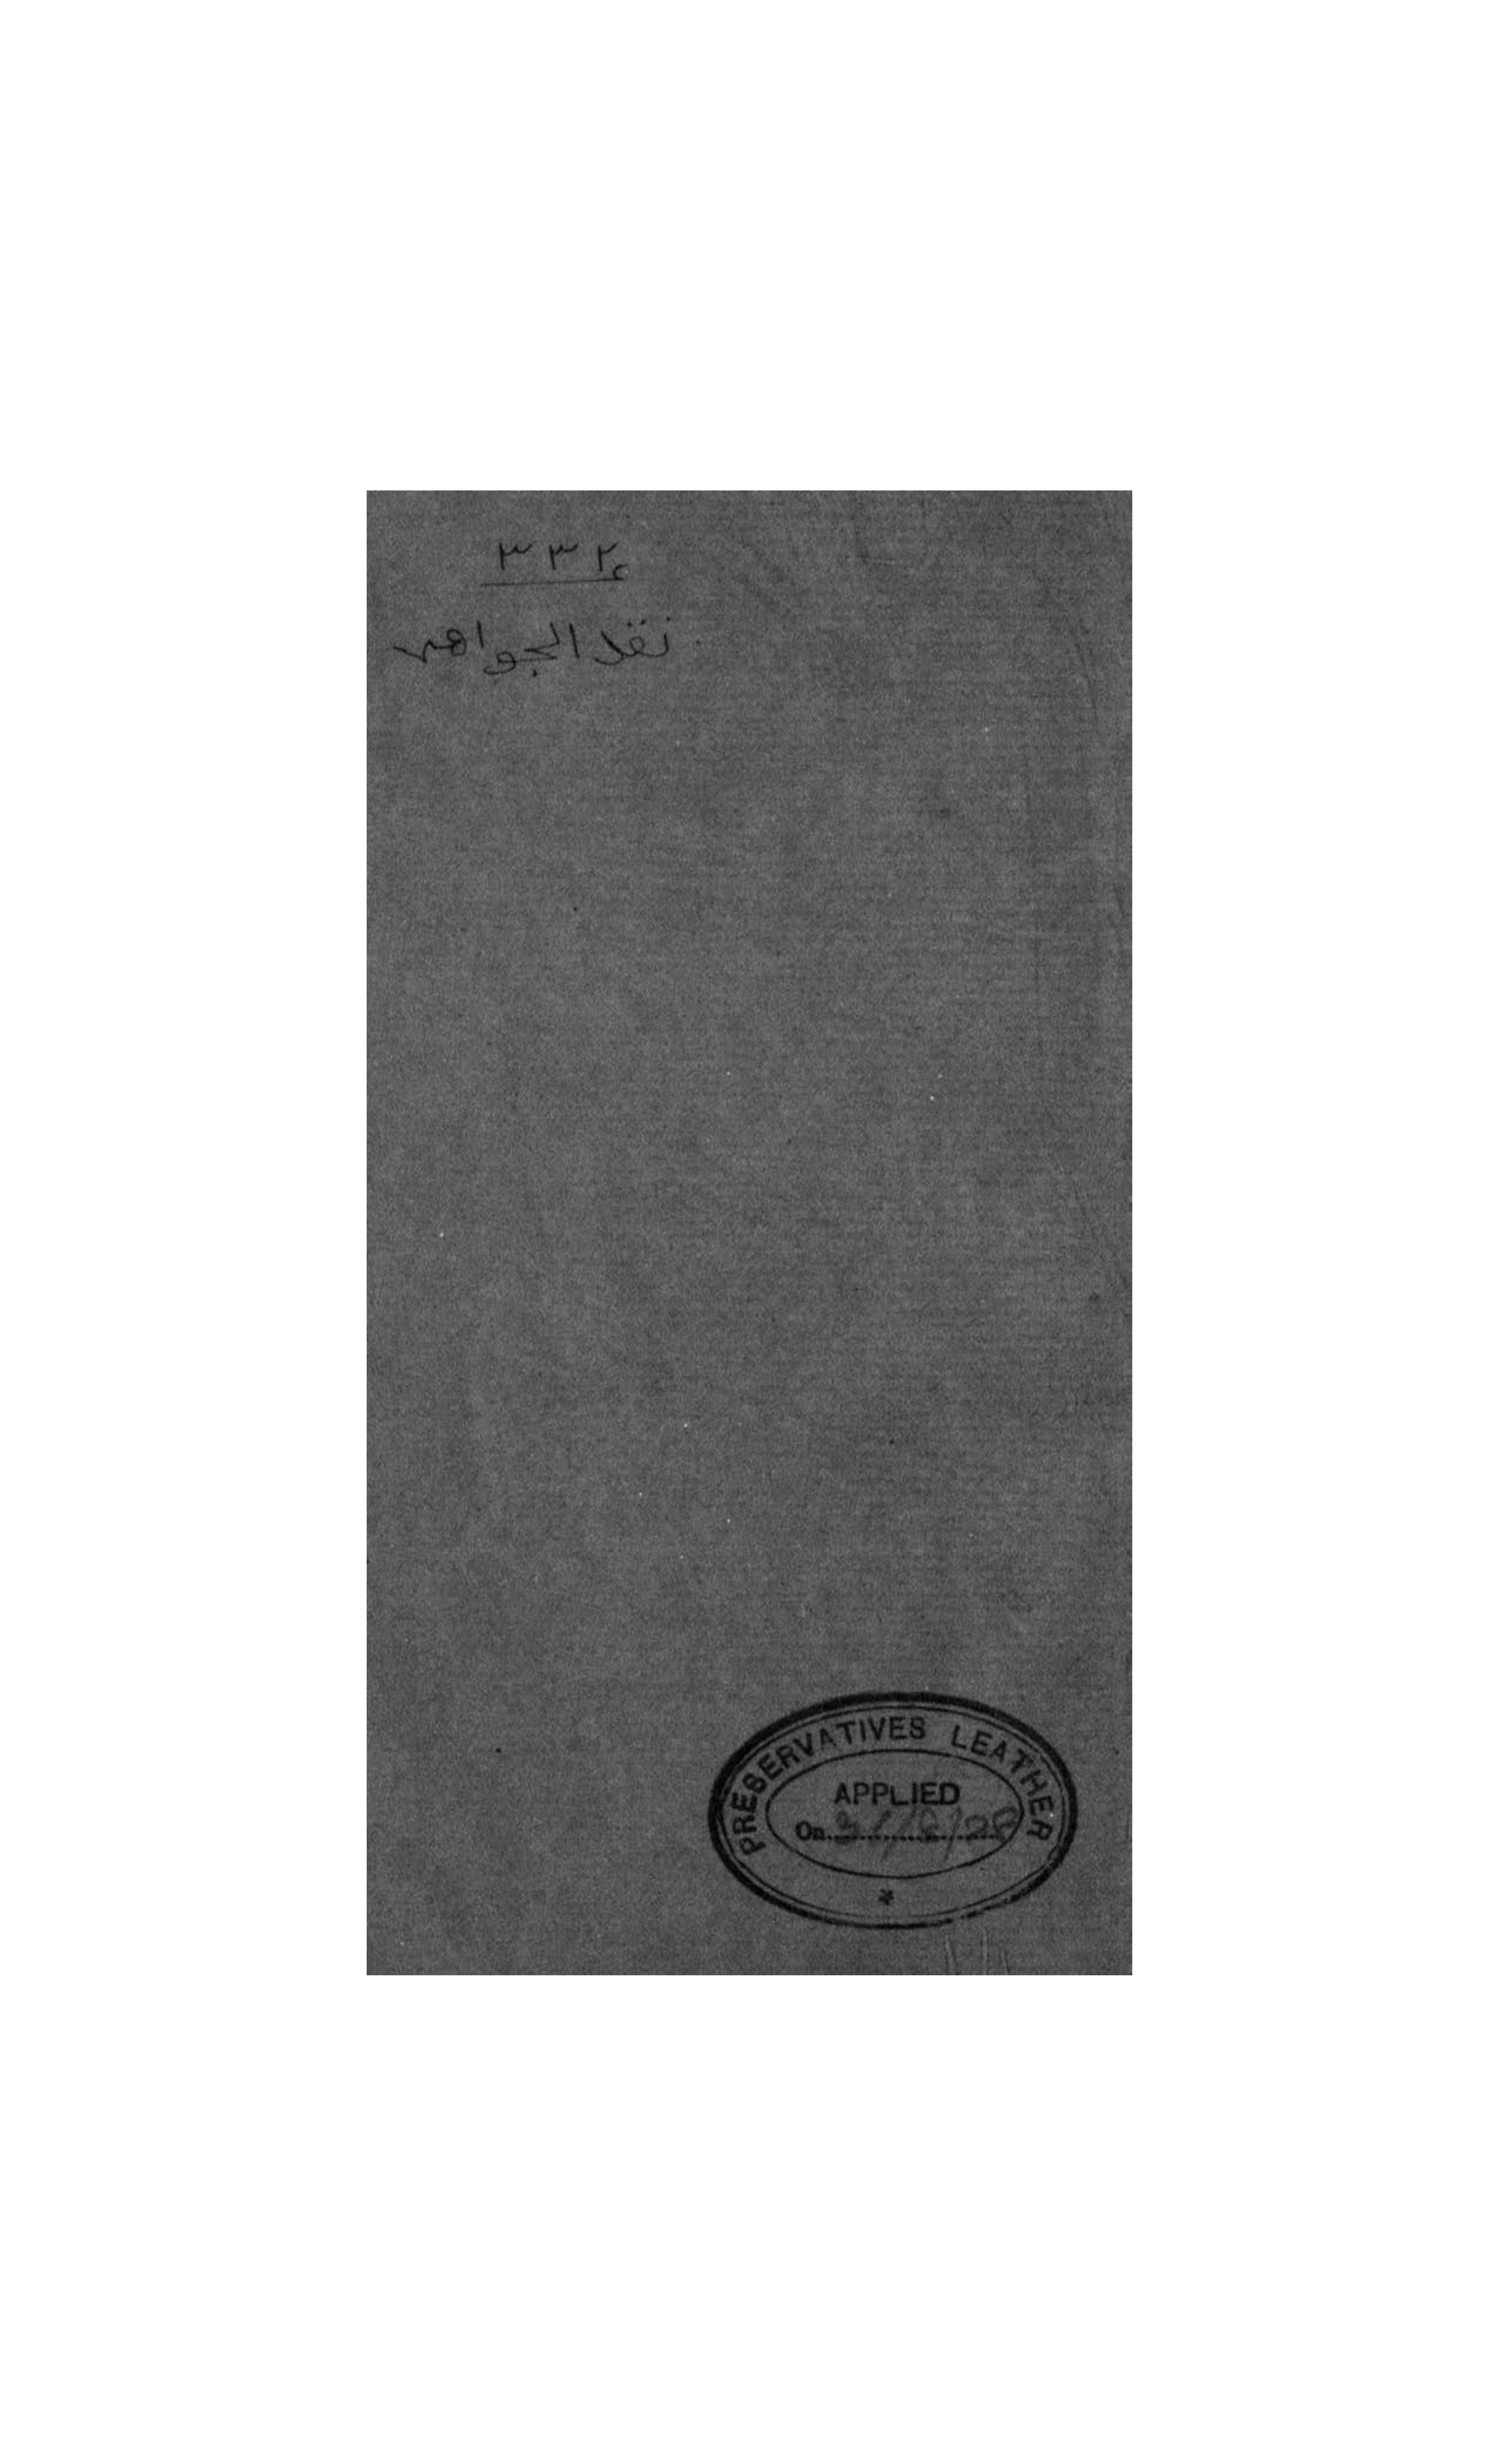 ٣٣٢
نقد الجواهر
PRESERVATIVES LEATHER
APPLIED
On